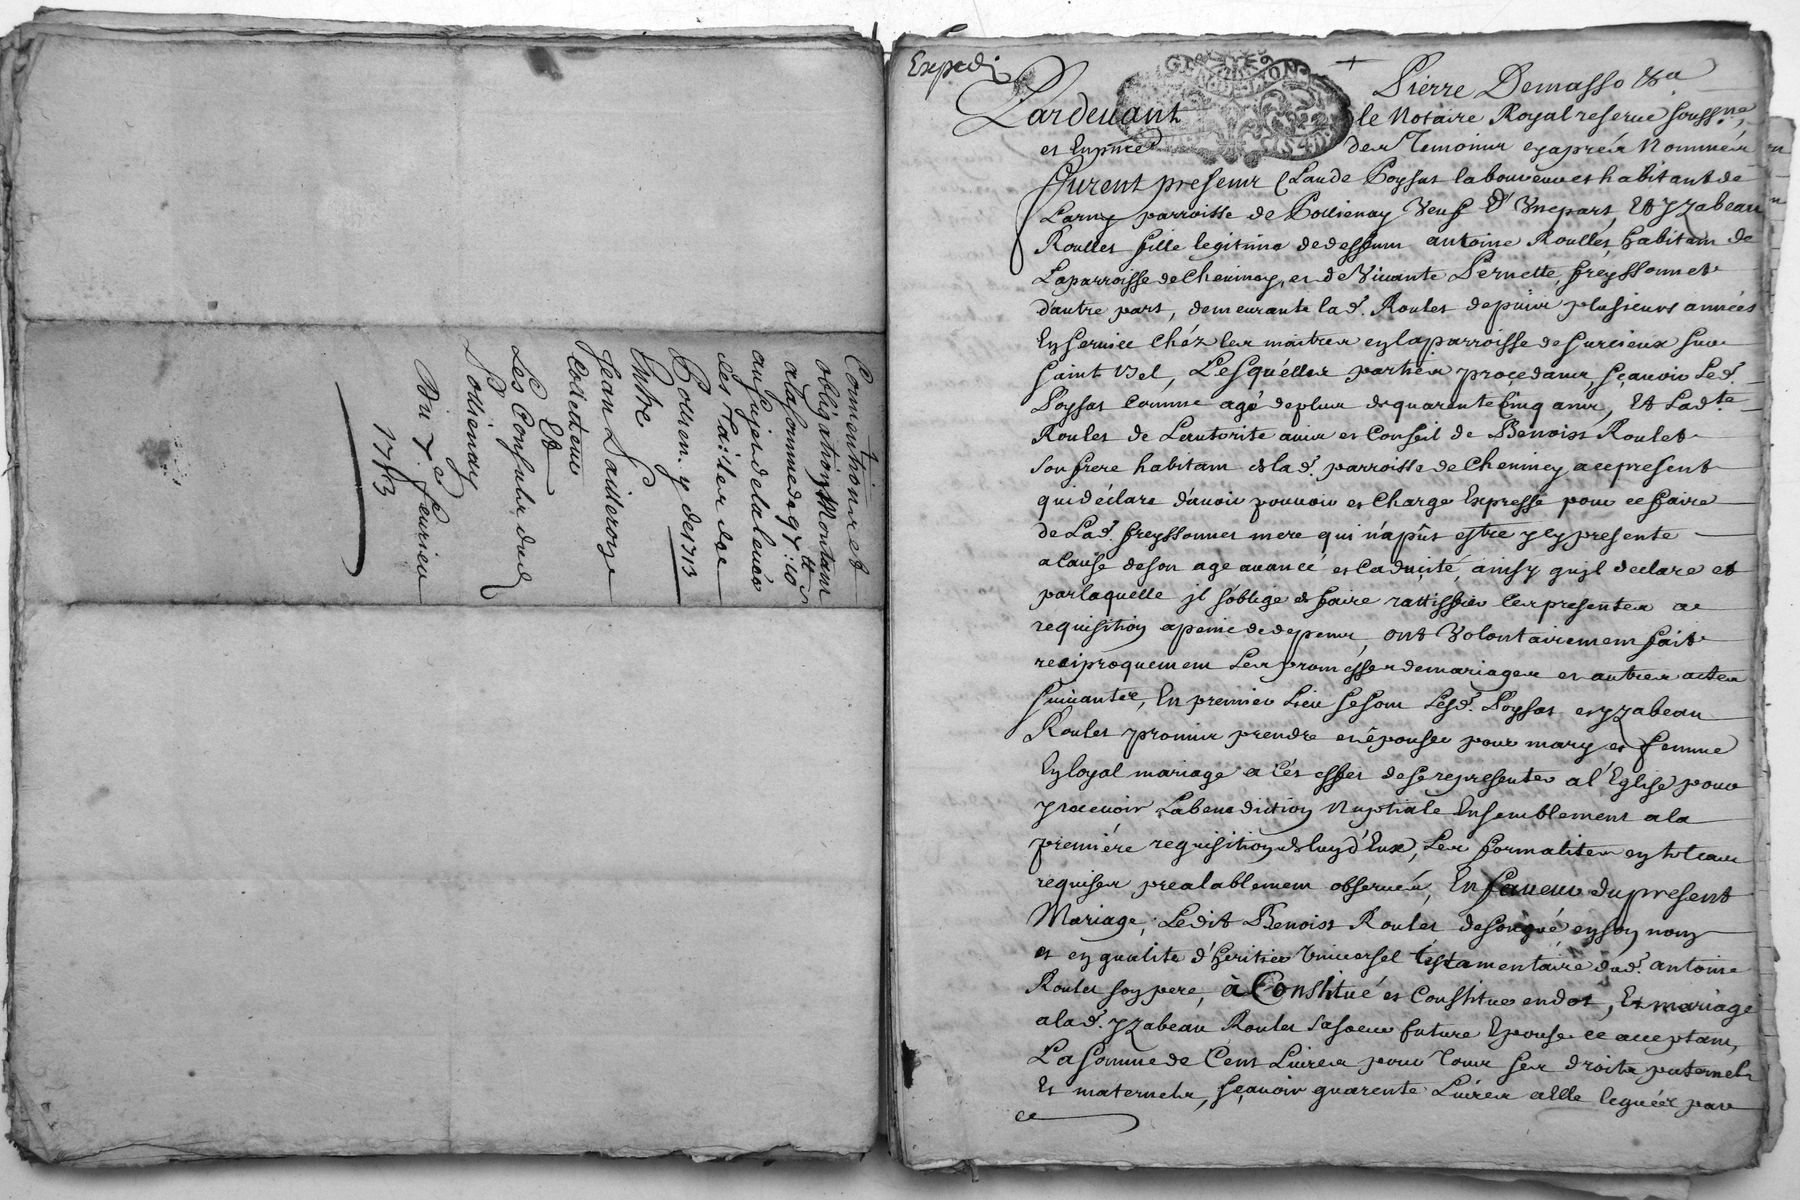 Convention et
obligation Montant
a la somme de 97 ₶: 10 s
au sujet de la levée
des Tailles de
Pollien.y de 1713
Entre
Jean Pailleroy
Collecteur
Et
Les Consuls dud
Pollienay
Du 7e feurier
1713
Exped.
Pierre Demasso &a
Pardeuant le Notaire Royal reserué soussné,
et En pnce des Temoins cy apres Nommés
furent presens Claude Poysat laboureur et habitant de
Larny parroisse de Pollienay Veuf d'Vne part, Et Yzabeau
Roullet fille legitime de deffunt antoine Roullet habitant de
La parroisse de Cheuinay, et de Viuante Pernette freyssonnet
d'autre part, demeurante lad. Roulet depuis plusieurs années
En seruice chéz les maitres en la parroisse de Sourcieux sur
Saint Bel, Lesquelles parties procedants, sçauoir Led.
Poysat comme agé de plus de quarente cinq ans, Et Lad.te
Roulet de L'autorité auis et Conseil de Benoist Roulet
son frere habitant de lad. parroisse de Cheuiney, a ce present
qui déclare d'auoir pouuoir et Charge Expresse pour ce faire
de Lad. freyssonnet mere qui n'a pût estre ycy presente
a Cause de son age auancé et Caducité, ainsy qu'jl declare et
par laquelle jl s'oblige de faire rattiffier les presentes a
requisition a peine de depens, ont Volontairement fait
reciproquement Les promesses de mariages et autres actes
suiuantes, En premier Lieu se sont Lesd. Poysat et Yzabeau
Roulet promis prendre et épouser pour mary et femme
En loyal mariage a Cés effet de se representer a l'Eglise pour
y receuoir La benediction Nuptiale Ensemblement a la
premiére requisition de l'un d'Eux, Les formalites en tel cas
requises prealablement obserués, En faueur du present
Mariage, Ledit Benoist Roulet de son gré en son nom
et en qualité d'heritier Vniuersel testamentaire dud. antoine
Roulet son pere, à Constitué et Constitue en dot, Et mariage
a lad. Yzabeau Roulet sa soeur future Epouse ce acceptant,
La somme de Cent Liures pour tous ses droits paternels
Et maternels, sçauoir quarente Liures a elle legués par
ce